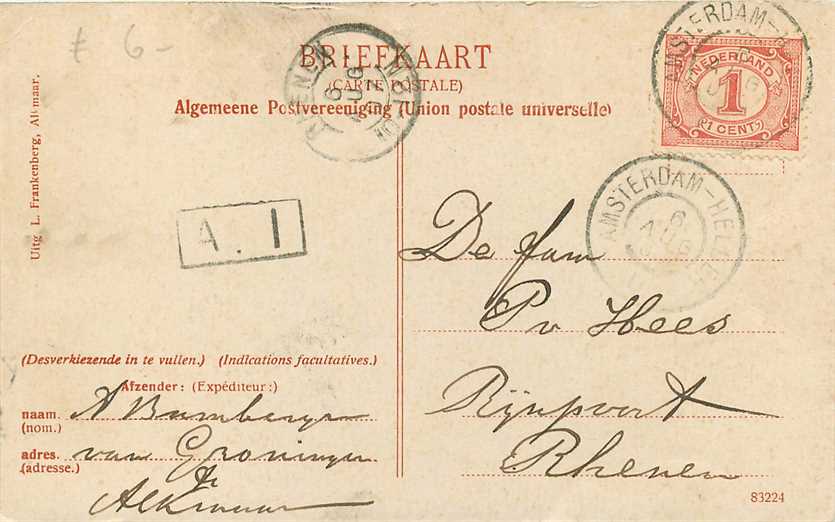 £ 6-
BRIEFKAART
(CARTE POSTALE)
Algemeene Postvereeniging (Union postale universelle)
Uitg L. Frankenberg, Alkmaar.
NEDERLAND
1
1 CENT
AMSTERDAM-H
AMSTERDAM-HELDER
6
AUG
RHENEN
6
AUG
A. I
De fam
Pv Hees
Rijnpoort
Rhenen
(Desverkiezende in te vullen.) (Indications facultatives.)
Afzender: (Expéditeur:)
naam.
(nom.)
adres. van Groningen
(adresse.)
te
Alkmaar
83224